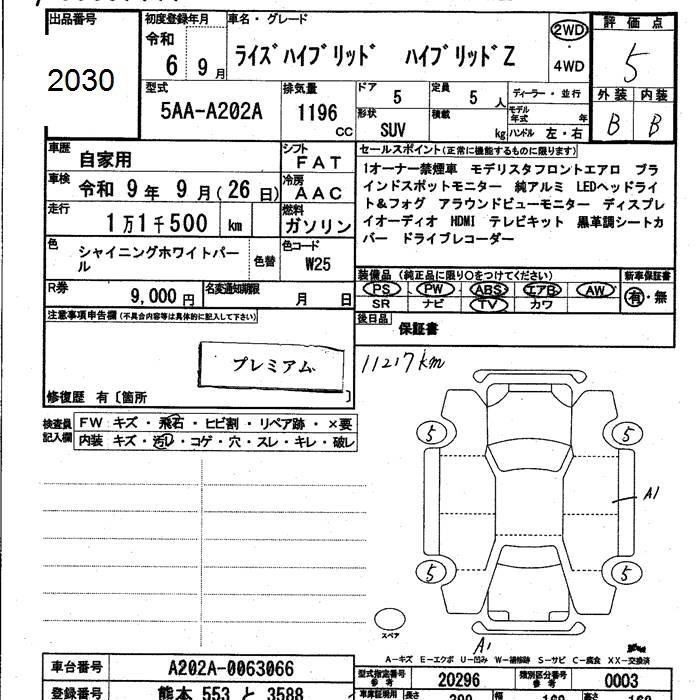 出品番号
2030
初度登録年月
令和
6 9月
車名・グレード
ライズハイブリッド ハイブリッドZ
2WD
・
4WD
評価点
5
型式
5AA-A202A
排気量
1196
cc
ドア
5
定員
5 人
形状
SUV
積載
kg
ディーラー・並行
モデル年式 年
ハンドル 左・右
外装 内装
B B
車歴
自家用
シフト
FAT
車検
令和 9年 9月(26日)
冷房
AAC
走行
1万1千500 km
燃料
ガソリン
色
シャイニングホワイトパール
色替
色コード
W25
R券
9,000円
名変通知期限
月 日
セールスポイント(正常に機能するものに限ります)
1オーナー禁煙車 モデリスタフロントエアロ ブラ
インドスポットモニター 純アルミ LEDヘッドライ
ト&フォグ アラウンドビューモニター ディスプレ
イオーディオ HDMI テレビキット 黒革調シートカ
バー ドライブレコーダー
装備品(純正品に限り○をつけてください)
PS PW ABS エアB AW
SR ナビ TV カワ
新車保証書
有・無
後日品
保証書
注意事項申告欄(不具合内容等は具体的に記入して下さい)
プレミアム
修復歴 有〔箇所 〕
11217km
検査員
記入欄
FW キズ・飛石・ヒビ割・リペア跡・×要
内装 キズ・汚レ・コゲ・穴・スレ・キレ・破レ
5
5
A1
5
5
スペア
A1
A-キズ E-エクボ U-凹み W-補修跡 S-サビ C-腐食 XX-交換済
車台番号
A202A-0063066
型式指定番号
参考
20296
類別区分番号
参考
0003
登録番号
熊本 553 と 3588
長さ
399
幅
169
高さ